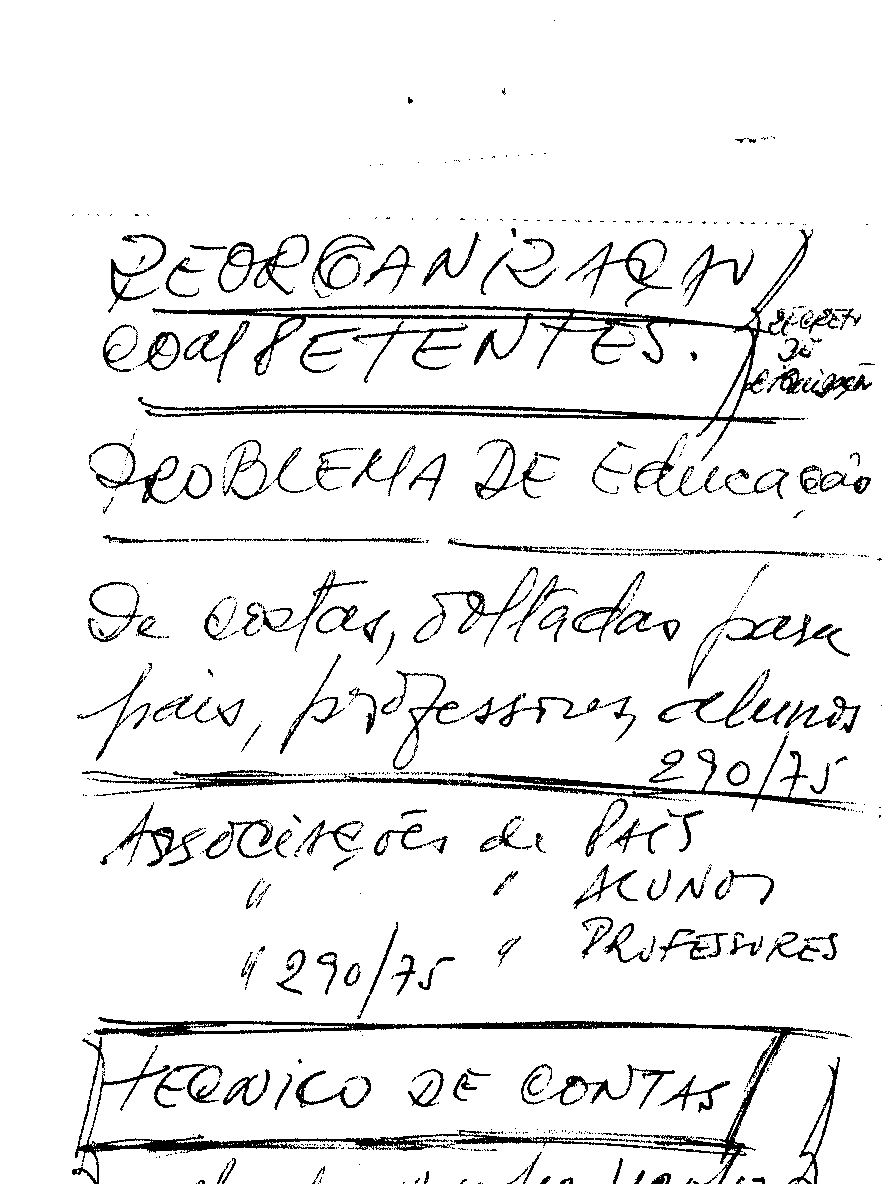 REORGANIZAÇÃO
COMPETENTES.
PROBLEMA DE Educação
De costas, voltadas para
pais, professores, alunos
290/75
Associações de PAIS
" " ALUNOS
" 290/75 " PROFESSORES
TECNICO DE CONTAS